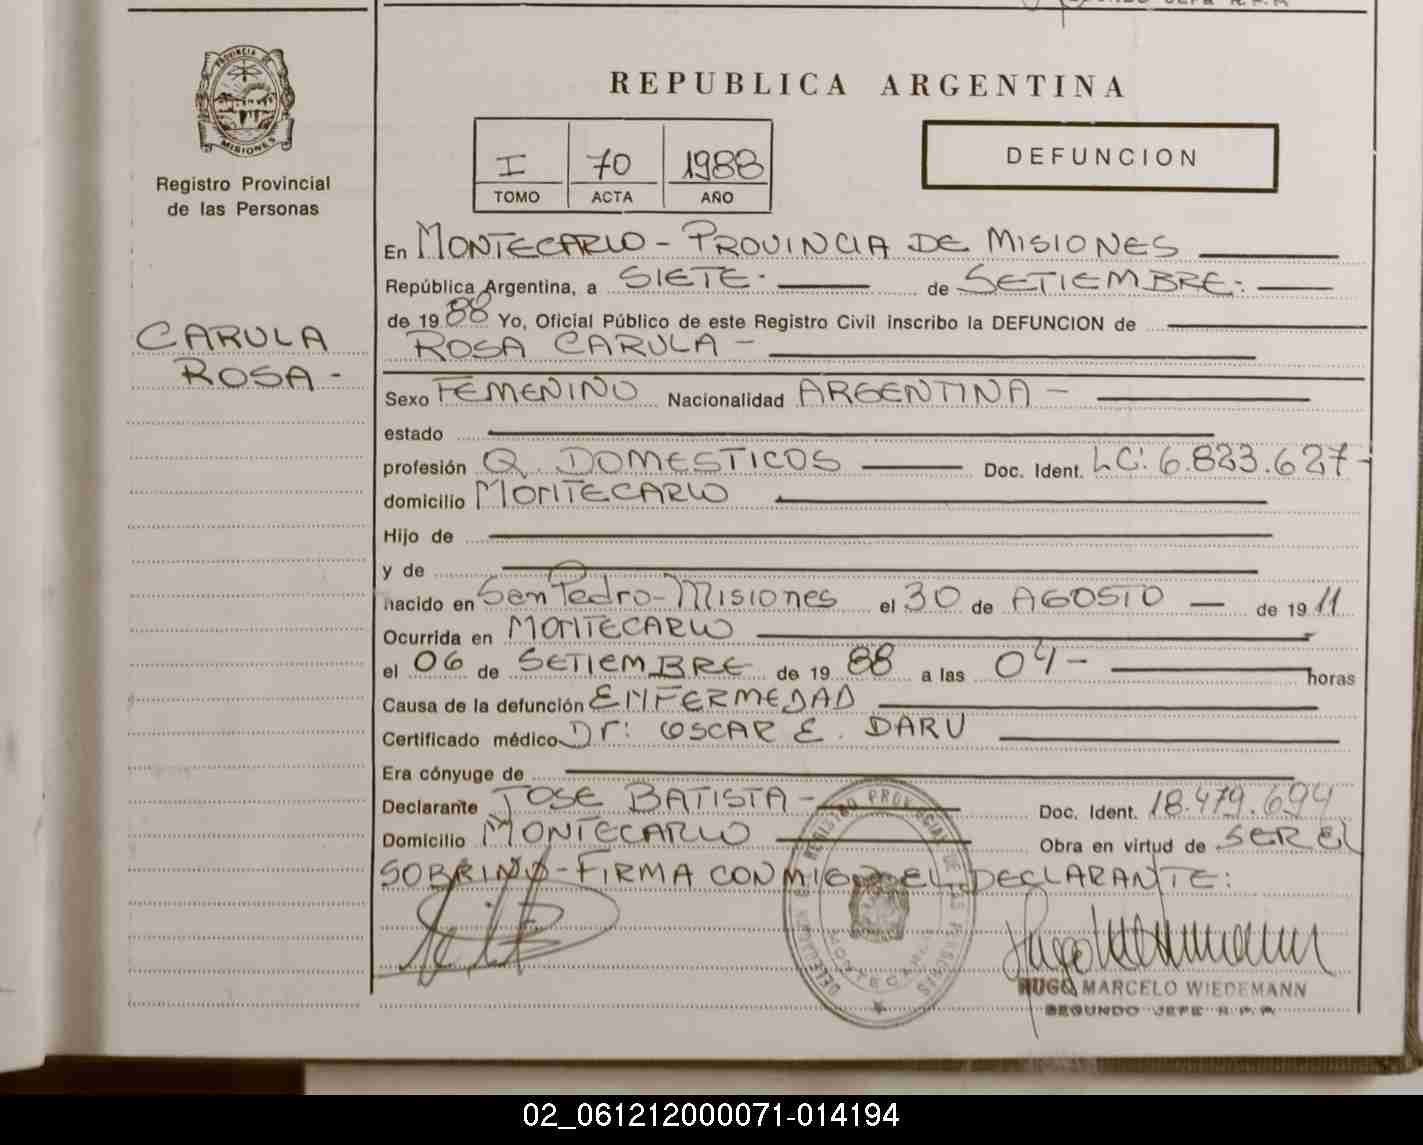 PROVINCIA DE
MISIONES
Registro Provincial
de las Personas
CARULA
ROSA -
REPUBLICA ARGENTINA
I 70 1988
TOMO ACTA AÑO
DEFUNCION
En MONTECARLO - PROVINCIA DE MISIONES
República Argentina, a SIETE.- de SETIEMBRE.-
de 1988 Yo, Oficial Público de este Registro Civil inscribo la DEFUNCION de
ROSA CARULA -
Sexo FEMENINO Nacionalidad ARGENTINA -
estado
profesión Q. DOMESTICOS Doc. Ident. LC: 6.823.627-
domicilio MONTECARLO
Hijo de
y de
nacido en San Pedro - Misiones el 30 de AGOSTO - de 1911
Ocurrida en MONTECARLO
el 06 de SETIEMBRE de 1988 a las 04 - horas
Causa de la defunción ENFERMEDAD
Certificado médico Dr: OSCAR E. DARU
Era cónyuge de
Declarante JOSE BATISTA - Doc. Ident. 18.479.694
Domicilio MONTECARLO Obra en virtud de SER EL
SOBRINO - FIRMA CONMIGO EL DECLARANTE:
REGISTRO PROVINCIAL DE LAS PERSONAS
MONTECARLO
HUGO MARCELO WIEDEMANN
SEGUNDO JEFE R.P.P.
02_061212000071-014194